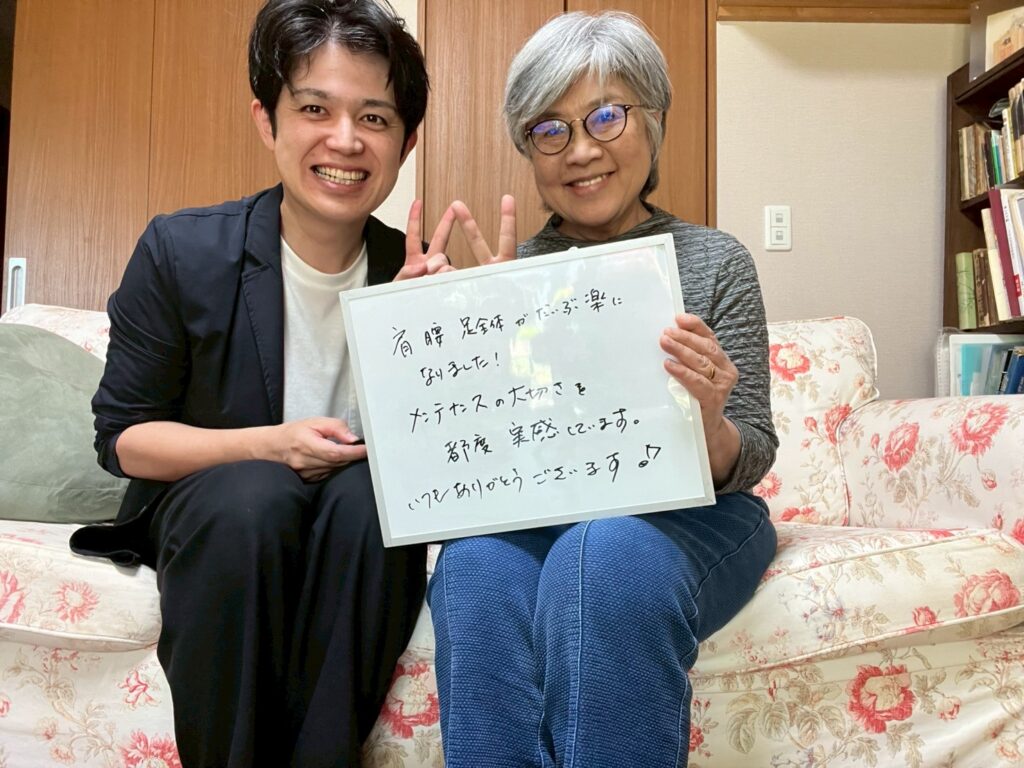 肩 腰 足全体がだいぶ楽に
なりました！
メンテナンスの大切さを
都度 実感しています。
いつもありがとうございます♪